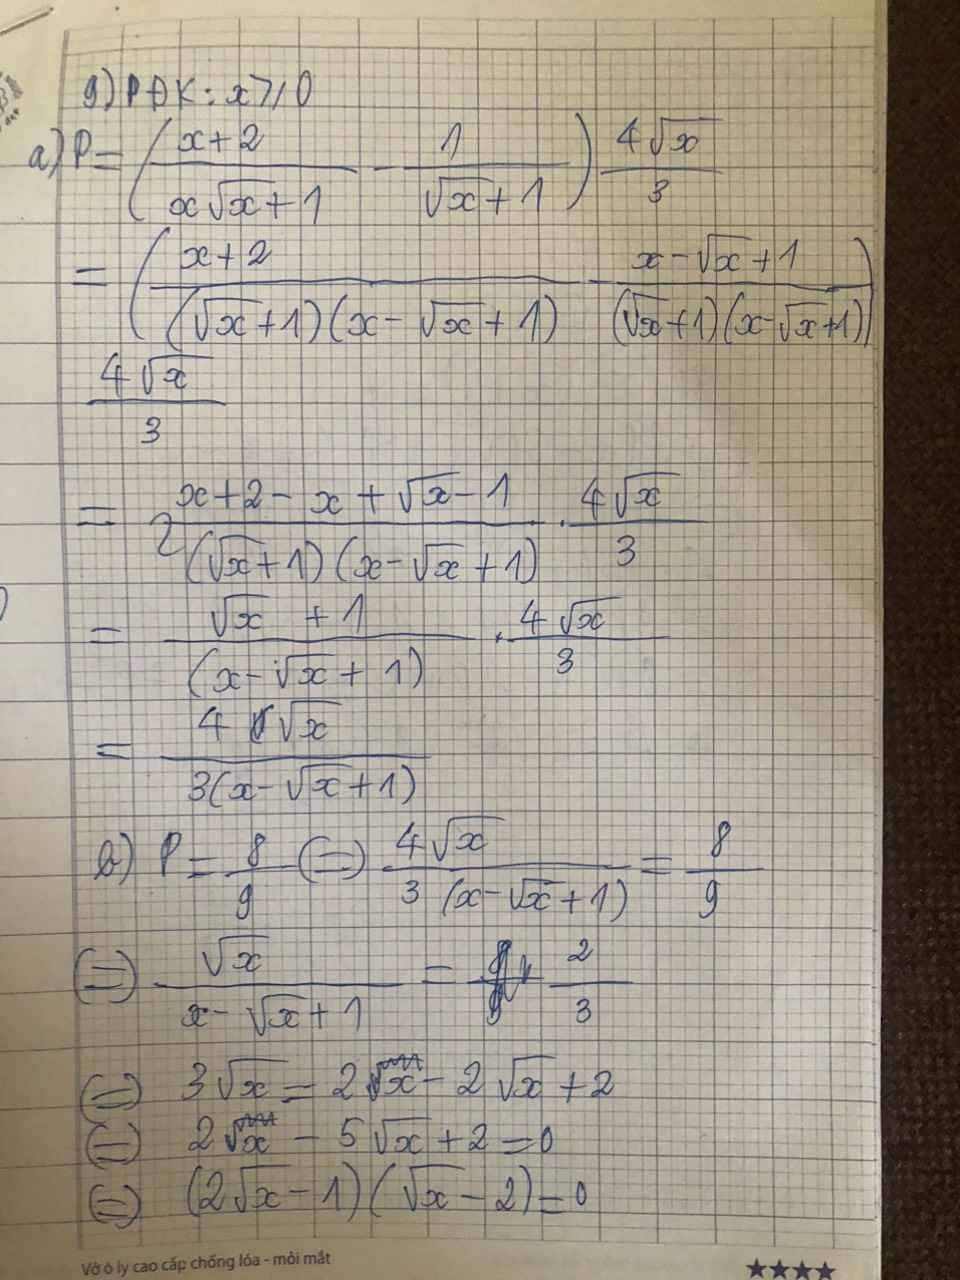 9) ĐK: x ⩾ 0
a) P = ( (x+2)/(x√x+1) - 1/(√x+1) ) 4√x/3
= ( (x+2)/((√x+1)(x-√x+1)) - (x-√x+1)/((√x+1)(x-√x+1)) )
4√x/3
= (x+2-x+√x-1)/((√x+1)(x-√x+1)) . 4√x/3
= (√x+1)/(x-√x+1) . 4√x/3
= 4√x/(3(x-√x+1))
b) P = 8/9 (=) 4√x/(3(x-√x+1)) = 8/9
(=) √x/(x-√x+1) = 2/3
(=) 3√x = 2x - 2√x + 2
(=) 2x - 5√x + 2 = 0
(=) (2√x-1)(√x-2) = 0
Vở ô ly cao cấp chống lóa - mỏi mắt